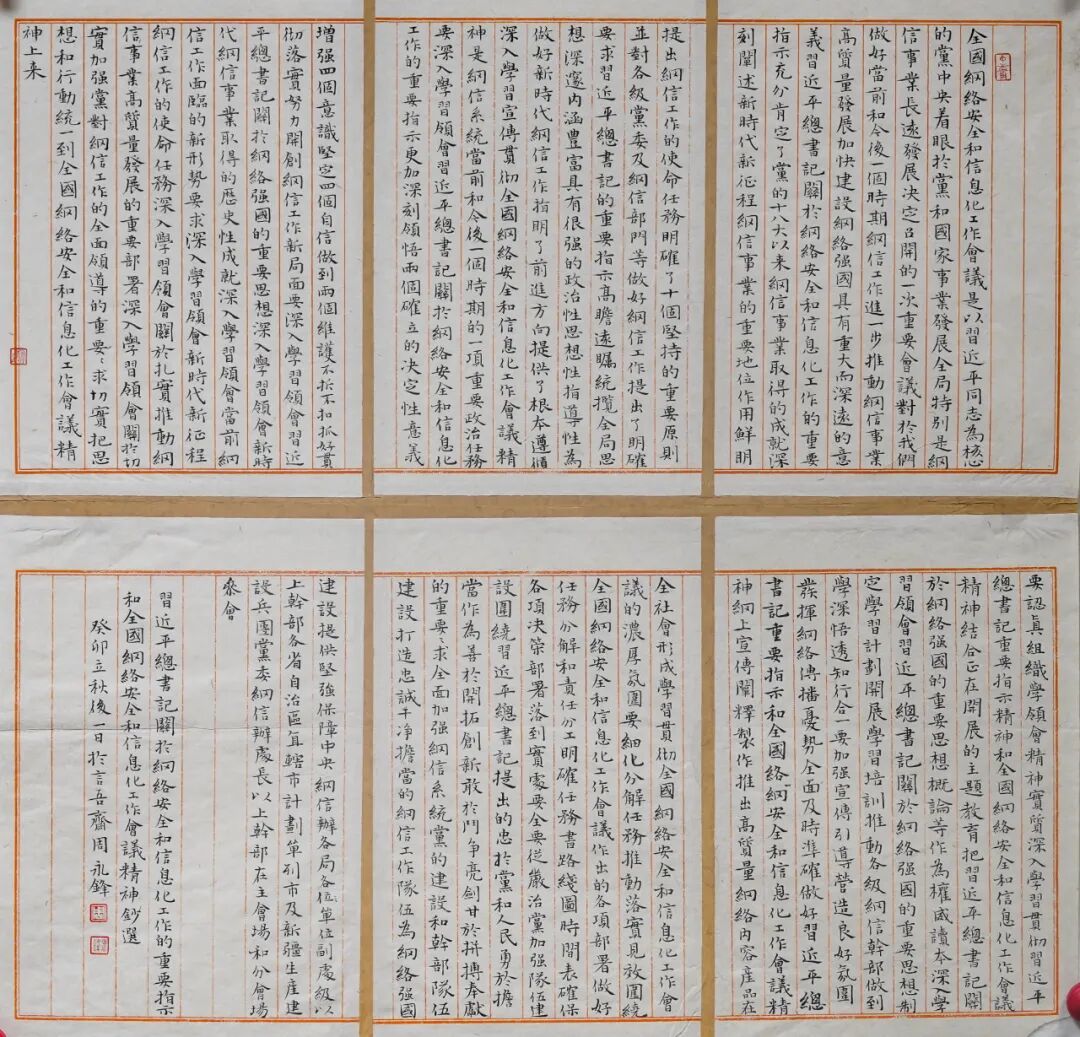 全國網络安全和信息化工作會議是以習近平同志為核心
的黨中央着眼於黨和國家事業發展全局特别是網
信事業長遠發展决定召開的一次重要會議對於我們
做好當前和今後一個時期網信工作進一步推動網信事業
高質量發展加快建設網络强國具有重大而深遠的意
義習近平總書記關於網络安全和信息化工作的重要
指示充分肯定了黨的十八大以来網信事業取得的成就深
刻闡述新時代新征程網信事業的重要地位作用鮮明
提出網信工作的使命任務明確了十個堅持的重要原則
並對各級黨委及網信部門等做好網信工作提出了明確
要求習近平總書記的重要指示高瞻遠矚統攬全局思
想深邃内涵豊富具有很强的政治性思想性指導性為
做好新時代網信工作指明了前進方向提供了根本遵循
深入學習宣傳貫彻全國網络安全和信息化工作會議精
神是網信系統當前和今後一個時期的一項重要政治任務
要深入學習領會習近平總書記關於網络安全和信息化
工作的重要指示更加深刻領悟兩個確立的决定性意義
增强四個意識堅定四個自信做到兩個維護不折不扣抓好貫
彻落實努力開創網信工作新局面要深入學習領會習近
平總書記關於網络强國的重要思想深入學習領會新時
代網信事業取得的歷史性成就深入學習領會當前網
信工作面臨的新形勢要求深入學習領會新時代新征程
網信工作的使命任務深入學習領會關於扎實推動網
信事業高質量發展的重要部署深入學習領會關於切
實加强黨對網信工作的全面領導的重要々求切實把思
想和行動統一到全國網络安全和信息化工作會議精
神上来
要認真組織學領會精神實質深入學習貫彻習近平
總書記重要指示精神和全國網络安全和信息化工作會議
精神結合正在開展的主題教育把習近平總書記關
於網络强國的重要思想概論等作為權威讀本深入學
習領會習近平總書記關於網络强國的重要思想制
定學習計劃開展學習培訓推動各級網信幹部做到
學深悟透知行合一要加强宣傳引導營造良好氛圍
發揮網络傳播優勢全面及時準確做好習近平總
書記重要指示和全國络網安全和信息化工作會議精
神網上宣傳闡釋製作推出高質量網络内容產品在
全社會形成學習貫彻全國網络安全和信息化工作會
議的濃厚氛圍要細化分解任務推動落實見效圍繞
全國網络安全和信息化工作會議作出的各項部署做好
任務分解和責任分工明確任務書路綫圖時間表確保
各項决策部署落到實處要全要從嚴治黨加强隊伍建
設圍繞習近平總書記提出的忠於黨和人民勇於擔
當作為善於開拓創新敢於鬥争亮劍甘於拼搏奉獻
的重要々求全面加强網信系統黨的建設和幹部隊伍
建設打造忠誠干净擔當的網信工作隊伍為網络强國
建設提供堅强保障中央網信辦各局各位單位副處級以
上幹部各省自治區直轄市計劃單列市及新疆生産建
設兵團黨委網信辦處長以上幹部在主會場和分會場
參會
習近平總書記關於網络安全和信息化工作的重要指示
和全國網络安全和信息化工作會議精神鈔選
癸卯立秋後一日於言吾齋周永鋒